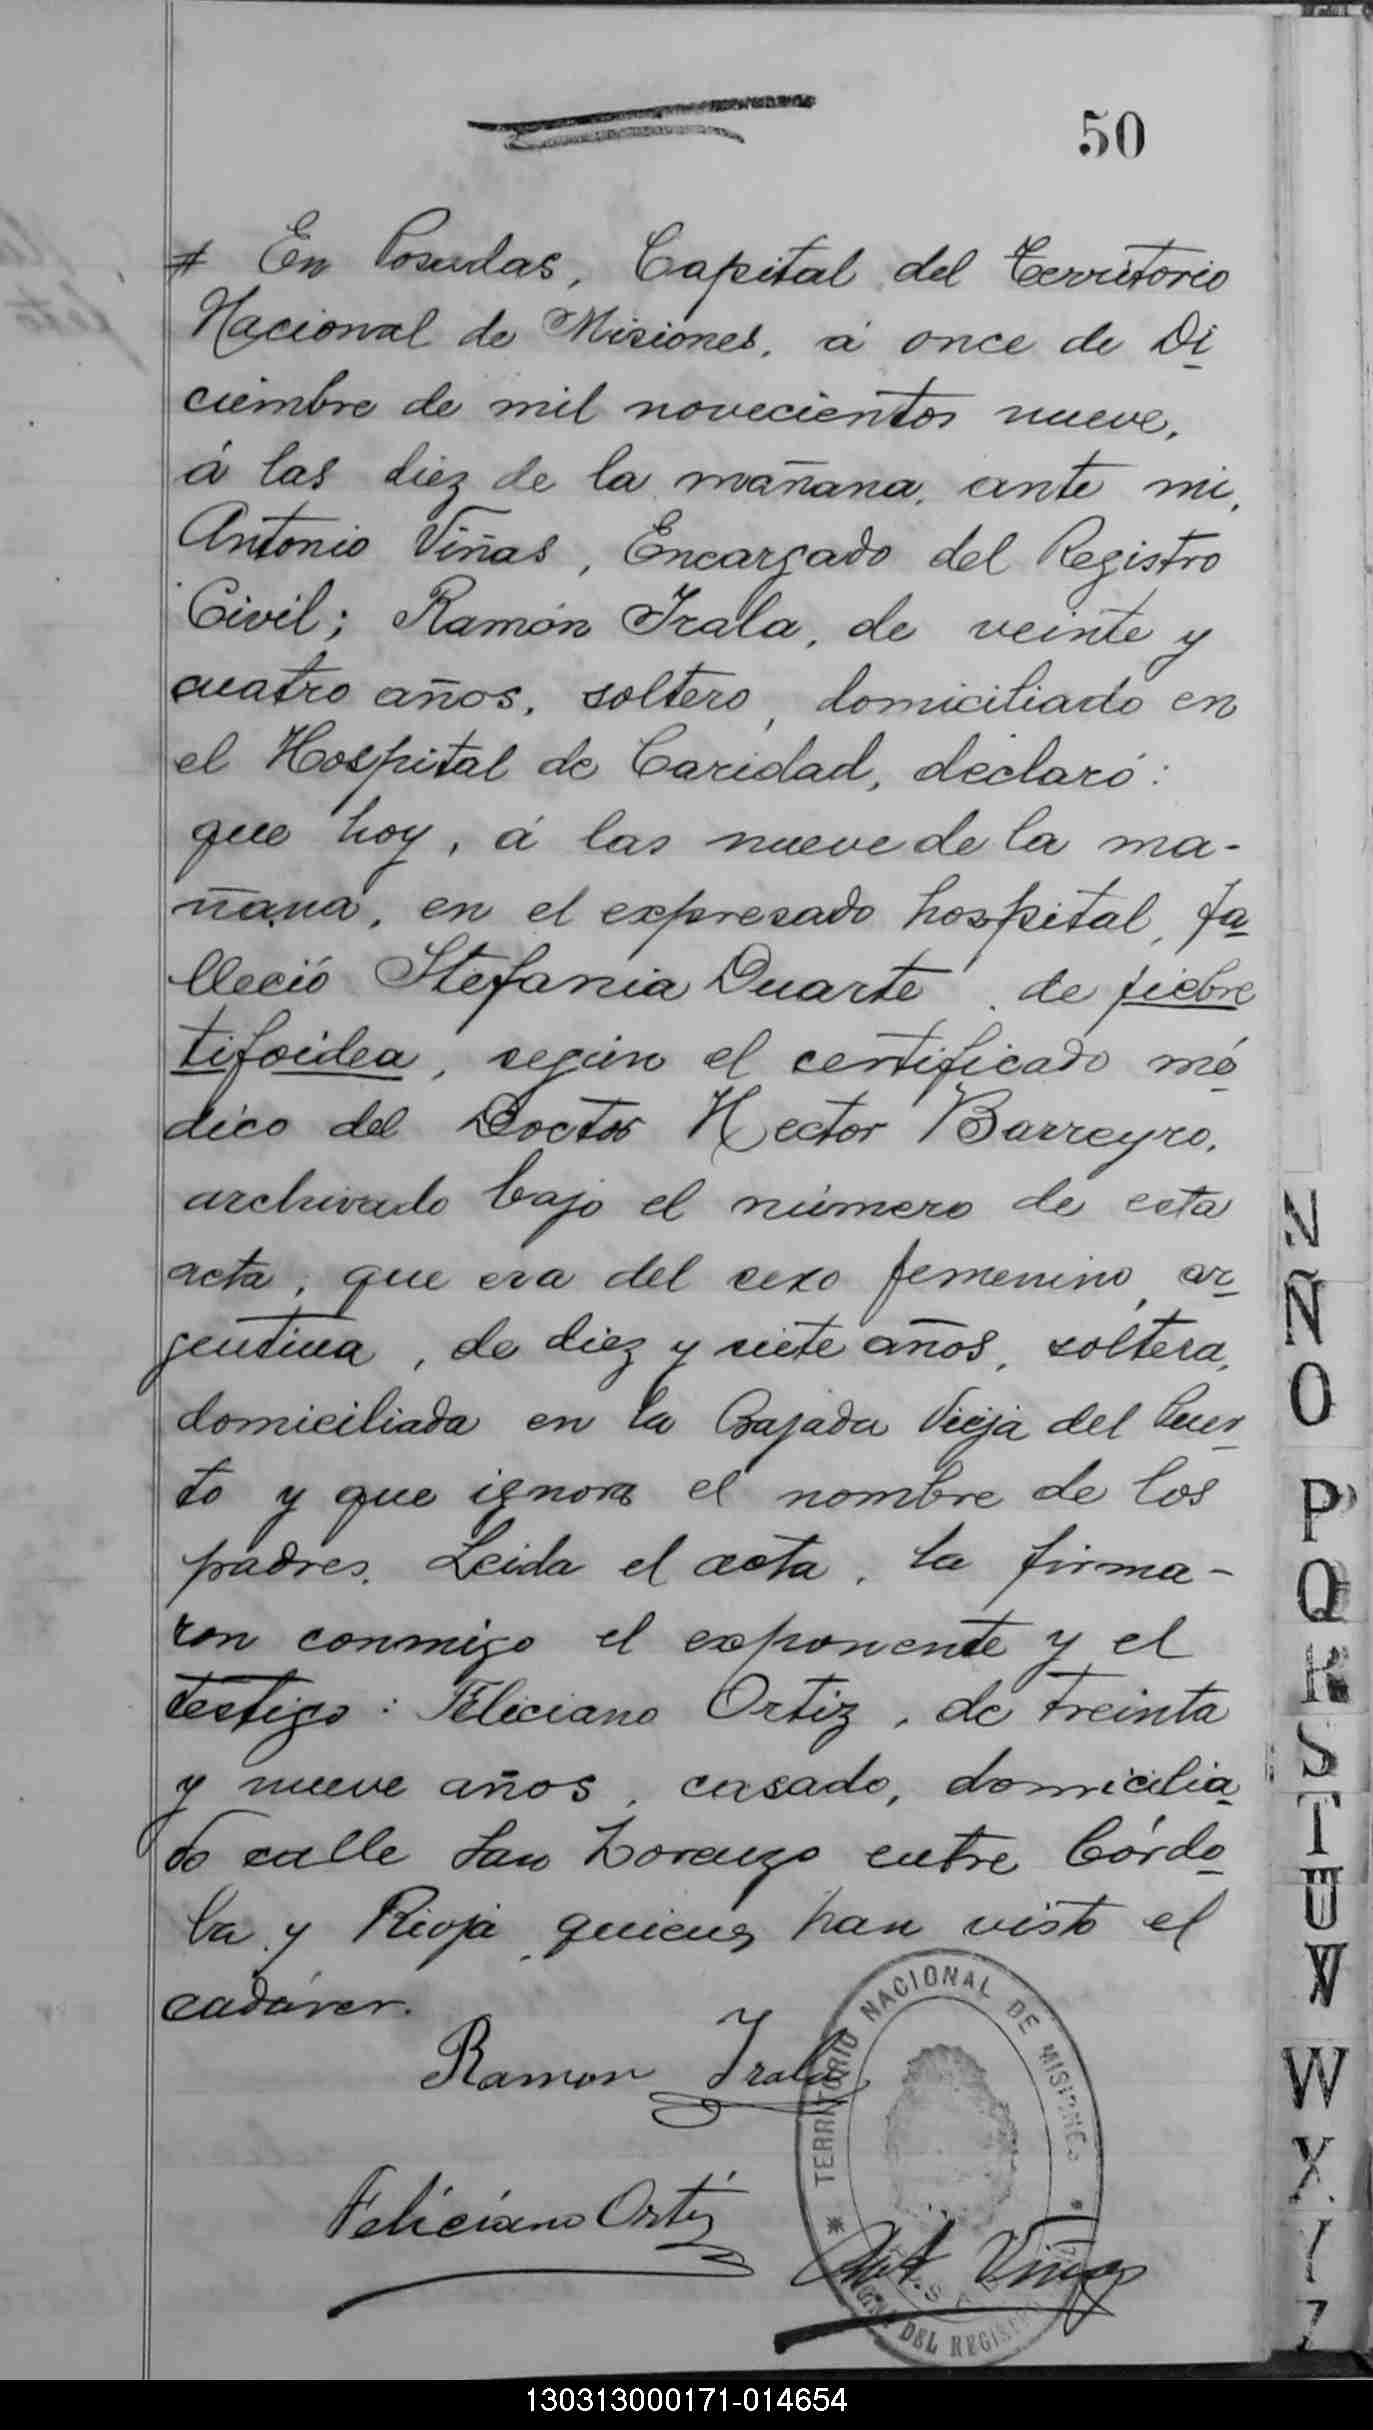 50
# En Posadas, Capital del Territorio
Nacional de Misiones, á once de Di
ciembre de mil novecientos nueve,
á las diez de la mañana, ante mi,
Antonio Viñas, Encargado del Registro
Civil; Ramón Irala, de veinte y
cuatro años, soltero, domiciliado en
el Hospital de Caridad, declaró:
que hoy, á las nueve de la ma-
ñana, en el expresado hospital, fa
lleció Stefania Duarte, de fiebre
tifoidea, según el certificado mé
dico del Doctor Hector Barreyro,
archivado bajo el número de esta
acta, que era del sexo femenino, ar
gentina, de diez y siete años, soltera,
domiciliada en la Bajada Vieja del Puer
to y que ignora el nombre de los
padres. Leida el acta, la firma-
ron conmigo el exponente y el
testigo: Feliciano Ortiz, de treinta
y nueve años, casado, domicilia
do calle San Lorenzo entre Córdo
ba y Rioja, quienes han visto el
cadáver.
Ramon Irala
Feliciano Ortiz
Ant. Viñas
* TERRITORIO NACIONAL DE MISIONES *
DEL REGISTRO
N
Ñ
O
P
Q
R
S
T
U
V
W
X
Y
Z
130313000171-014654